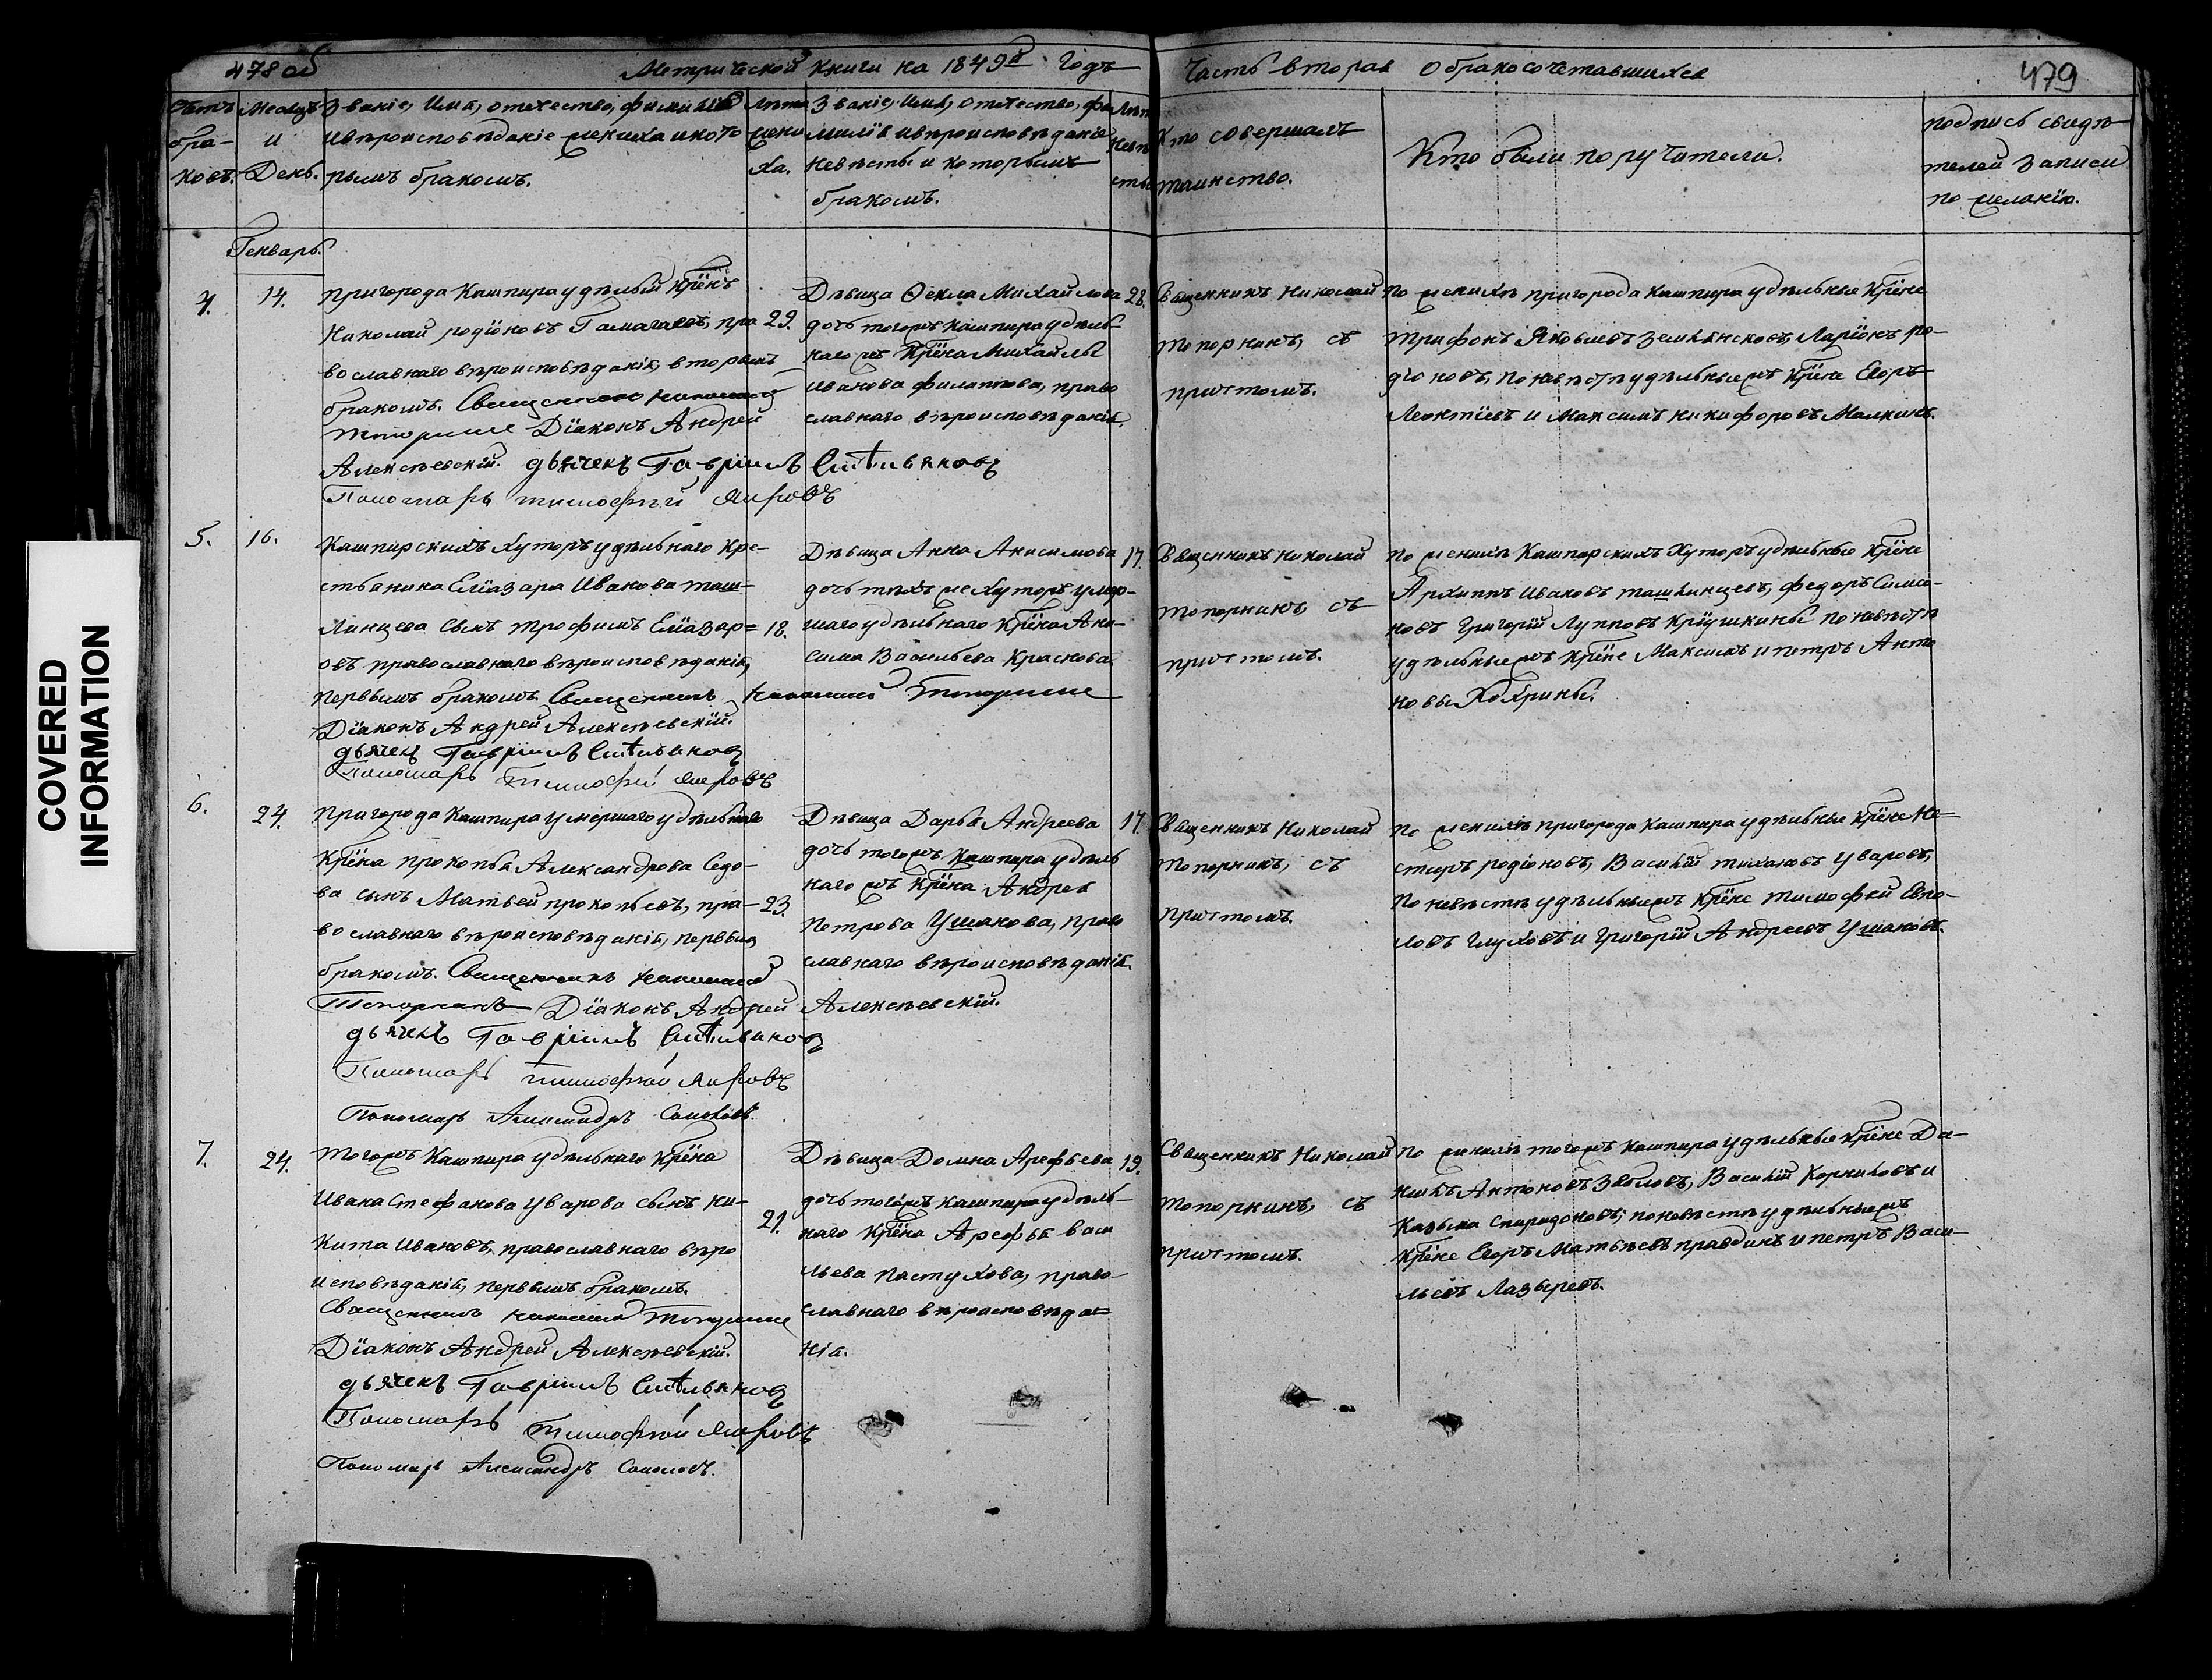 478 об
Метрической книги на 1849й Годъ
Часть вторая о бракосочетавшихся
479
Счетъ браковъ.
Месяцъ и День.
Званіе, Имя, отечество, фамилія
и вѣроисповѣданіе жениха и кото
рымъ бракомъ.
Лѣта жениха.
Званіе, Имя, отечество, фа
милія и вѣроисповѣданіе
Невѣсты и которымъ
бракомъ.
Лѣта невѣсты
Кто совершалъ
таинство.
Кто были поручители.
подпись свидѣ
телей записи
по желанію.
Генварь.
4.
14.
Пригорода Кашпира удѣлный крѣнъ
Николай родіоновъ Гамагаевъ, пра
вославнаго вѣроисповѣданія, вторымъ
бракомъ. Священникъ Николай
Топорнинъ Діаконъ Андрей
Алексѣевскій. дьячекъ Гавріилъ Ситливановъ
Пономарь тимофѣй
29.
Дѣвица Ѳекла Михайлова
дочь тогожъ Кашпира удѣль
наго жъ Крѣна Михайлы
Иванова филатова, право
славнаго вѣроисповѣданія.
28.
Священникъ Николай
топорнинъ, съ
причтомъ.
По женихѣ пригорода Кашпира удѣльные Крѣне
трифонъ Яковлевъ Землянсковъ, Ларіонъ ро-
діоновъ, по невѣстѣ удѣльныежъ Крѣне Егоръ
Леонтіевъ и Максимъ никифоровъ Малкинъ.
5.
16.
Кашпирскихъ Хуторъ удѣльнаго кре-
стьянина Еліазара Иванова таш-
линцева сынъ трофимъ Еліазар=
овъ православнаго вѣроисповѣданія,
первымъ бракомъ. Священникъ Николай Топорнинъ
Діаконъ Андрей Алексѣевскій.
дьячекъ Гавріилъ Ситливановъ
Пономарь Тимофей
18.
Дѣвица Анна Анисимова
дочь тѣхъ же Хуторъ умер-
шаго удѣльнаго Крѣна Ани-
сима Васильева Краснова
17.
Священникъ Николай
топорнинъ, съ
причтомъ.
По женихѣ Кашпирскихъ Хуторъ удѣльные Крѣне
Архиппъ Ивановъ ташлинцевъ, федоръ Симо-
новъ Григорій Лупповъ Кріушкины по невѣстѣ
удѣльныежъ Крѣне Максимъ и петръ Анто
новы Хохрины.
6.
24.
Пригорода Кашпира умершаго удѣльнаго
Крѣна прокопья Александрова Седо-
ва сынъ Матвей прокопьевъ, пра-
вославнаго вѣроисповѣданія, первымъ
бракомъ. Священникъ Николай
Топорнинъ Діаконъ Андрей Алексѣевскій.
дьячекъ Гавріилъ Ситливановъ
Пономарь тимофѣй
Пономарь Александръ Соколовъ.
23.
Дѣвица Дарья Андреева
дочь тогожъ Кашпира удѣль
наго жъ Крѣна Андрея
Петрова Ушакова, право
славнаго вѣроисповѣданія.
17.
Священникъ Николай
топорнинъ, съ
причтомъ.
По женихѣ пригорода Кашпира удѣльные Крѣне Не-
стеръ родіоновъ, Василій тихановъ Уваровъ,
По невѣстѣ удѣльныежъ Крѣне тимофей Евло-
ловъ Глуховъ и Григорій Андреевъ Ушаковъ.
7.
24.
Тогожъ Кашпира удѣльнаго Крѣна
Ивана Стефанова Уварова сынъ Ни-
кита Ивановъ, православнаго вѣро
исповѣданія, первымъ бракомъ.
Священникъ Николай Топорнинъ
Діаконъ Андрей Алексѣевскій.
дьячекъ Гавріилъ Ситливановъ
Пономарь Тимофѣй
Пономарь Александръ Соколовъ.
21.
Дѣвица Домна Арефьева
дочь тогожъ Кашпира удѣль-
наго Крѣна Арефья Васи
льева Пастухова, право
славнаго вѣроисповѣда=
нія.
19.
Священникъ Николай
топорнинъ, съ
причтомъ.
По женихѣ тогожъ Кашпира удѣльные Крѣне Да-
нилъ Антоновъ Василій Корниловъ и
Казьма Спиридоновъ; по невѣстѣ удѣльныежъ
Крѣне Егоръ Матвѣевъ правдинъ и петръ Васи-
льевъ Лазыревъ.
COVERED
INFORMATION